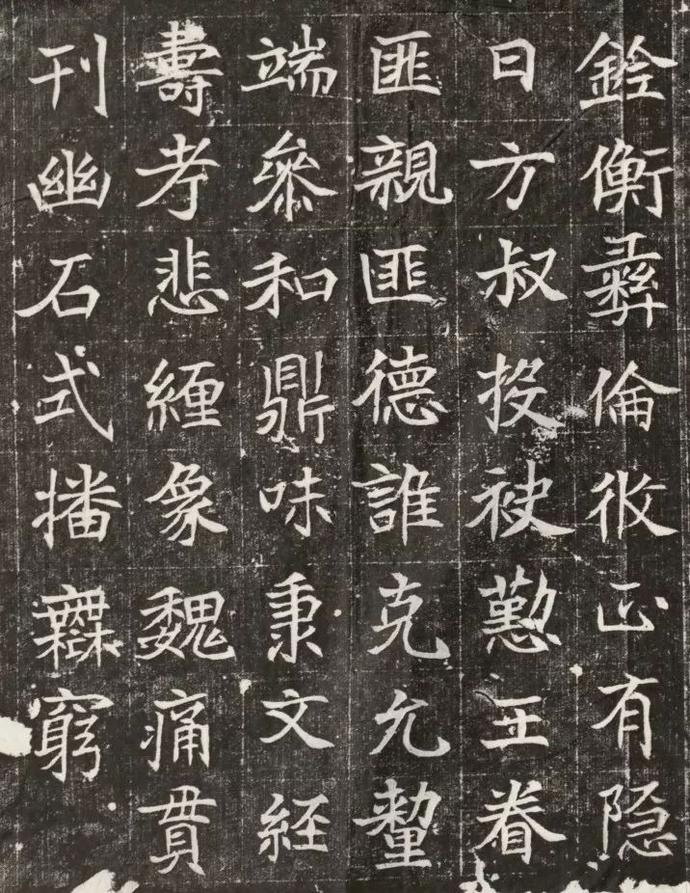 銓衡彝倫攸正有隐
日方叔投袂懃王眷
匪親匪德誰克允釐
端叅和鼎味秉文經
壽考悲緾象魏痛貫
刊幽石式播橆窮